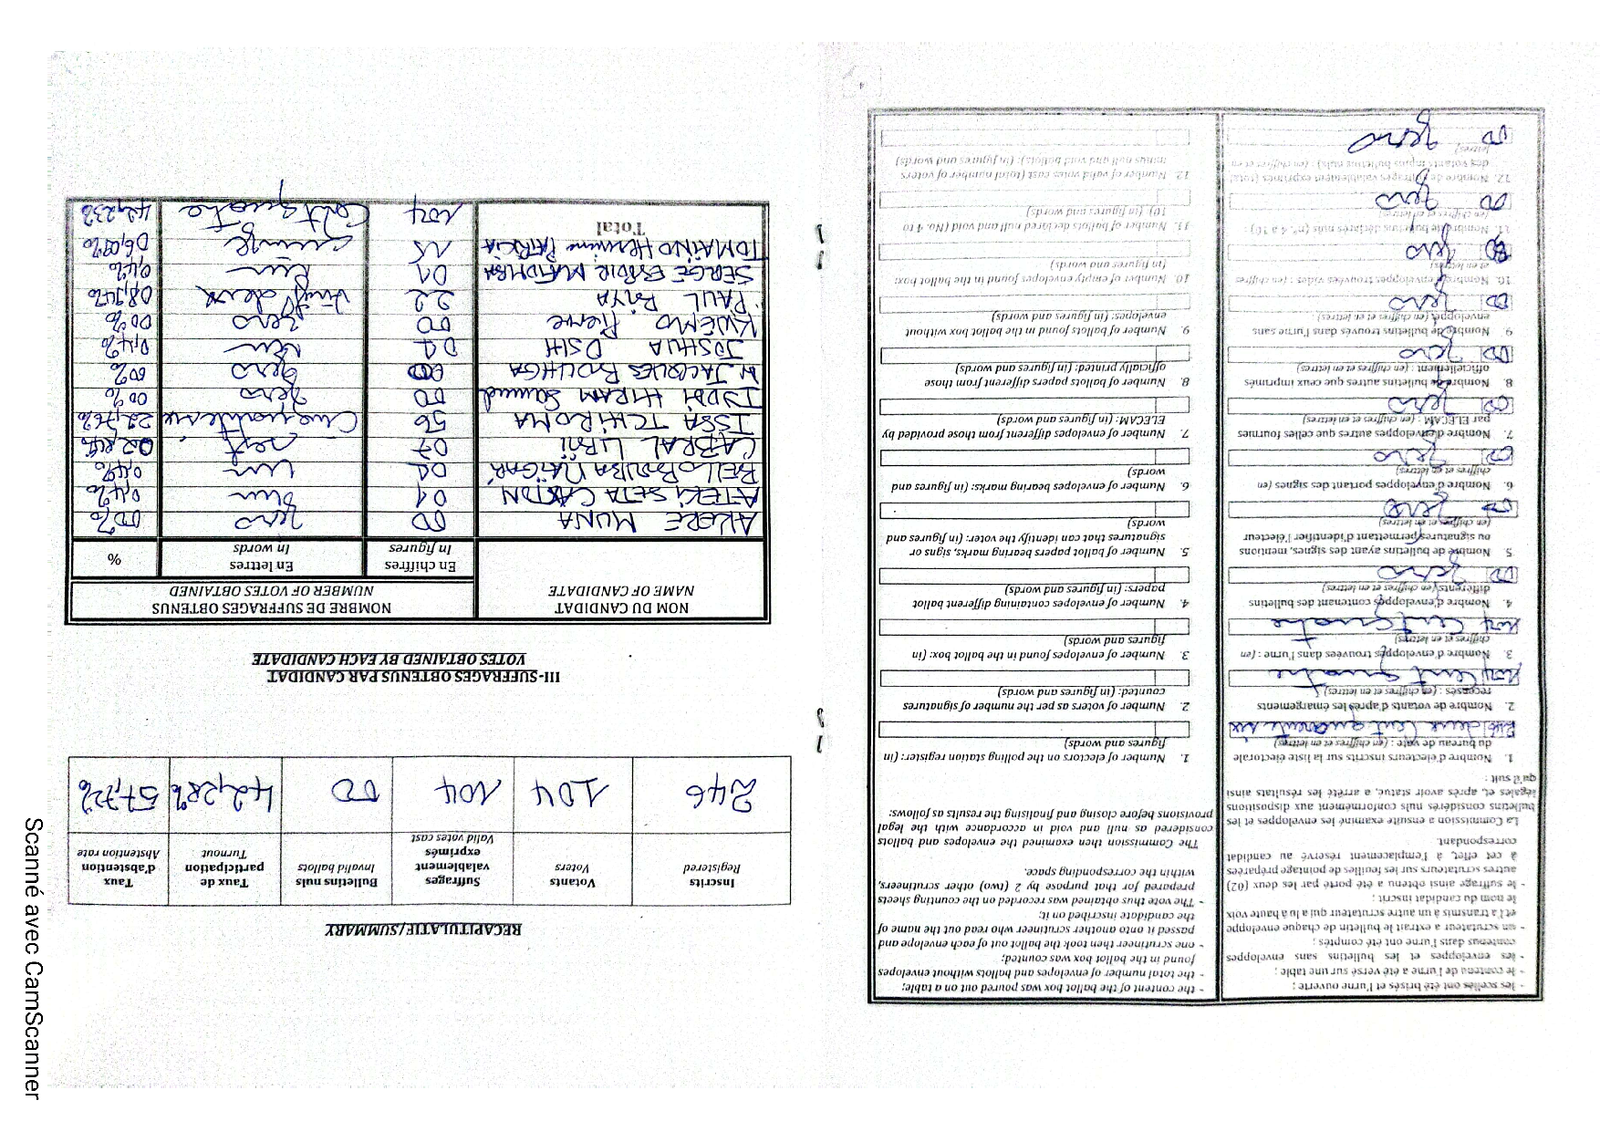 - les scellés ont été brisés et l'urne ouverte ;
- le contenu de l'urne a été versé sur une table ;
- les enveloppes et les bulletins sans enveloppes
contenus dans l'urne ont été comptés ;
- un scrutateur a extrait le bulletin de chaque enveloppe
et l'a transmis à un autre scrutateur qui a lu à haute voix
le nom du candidat inscrit ;
- le suffrage ainsi obtenu a été porté par les deux (02)
autres scrutateurs sur les feuilles de pointage préparées
à cet effet, à l'emplacement réservé au candidat
correspondant.
La Commission a ensuite examiné les enveloppes et les
bulletins considérés nuls conformément aux dispositions
légales et, après avoir statué, a arrêté les résultats ainsi
qu'il suit :
1. Nombre d'électeurs inscrits sur la liste électorale
du bureau de vote : (en chiffres et en lettres)
246 deux cent quarante six
2. Nombre de votants d'après les émargements
recensés : (en chiffres et en lettres)
104 cent quatre
3. Nombre d'enveloppes trouvées dans l'urne : (en
chiffres et en lettres)
104 cent quatre
4. Nombre d'enveloppes contenant des bulletins
différents (en chiffres et en lettres)
00 zéro
5. Nombre de bulletins ayant des signes, mentions
ou signatures permettant d'identifier l'électeur
(en chiffres et en lettres)
00 zéro
6. Nombre d'enveloppes portant des signes (en
chiffres et en lettres)
00 zéro
7. Nombre d'enveloppes autres que celles fournies
par ELECAM : (en chiffres et en lettres)
00 zéro
8. Nombre de bulletins autres que ceux imprimés
officiellement : (en chiffres et en lettres)
00 zéro
9. Nombre de bulletins trouvés dans l'urne sans
enveloppe (en chiffres et en lettres)
00 zéro
10. Nombre d'enveloppes trouvées vides : (en chiffres
et en lettres)
00 zéro
11. Nombre de bulletins déclarés nuls (n°. 4 à 10) :
(en chiffres et en lettres)
00 zéro
12. Nombre de suffrages valablement exprimés (total
des votants moins bulletins nuls) : (en chiffres et en
lettres)
00 zéro
- the content of the ballot box was poured out on a table;
- the total number of envelopes and ballots without envelopes
found in the ballot box was counted;
- one scrutineer then took the ballot out of each envelope and
passed it onto another scrutineer who read out the name of
the candidate inscribed on it;
- The vote thus obtained was recorded on the counting sheets
prepared for that purpose by 2 (two) other scrutineers,
within the corresponding space.
The Commission then examined the envelopes and ballots
considered as null and void in accordance with the legal
provisions before closing and finalising the results as follows:
1. Number of electors on the polling station register: (in
figures and words)
2. Number of voters as per the number of signatures
counted: (in figures and words)
3. Number of envelopes found in the ballot box: (in
figures and words)
4. Number of envelopes containing different ballot
papers: (in figures and words)
5. Number of ballot papers bearing marks, signs or
signatures that can identify the voter: (in figures and
words)
6. Number of envelopes bearing marks: (in figures and
words)
7. Number of envelopes different from those provided by
ELECAM: (in figures and words)
8. Number of ballots papers different from those
officially printed: (in figures and words)
9. Number of ballots found in the ballot box without
envelopes: (in figures and words)
10. Number of empty envelopes found in the ballot box:
(in figures and words)
11. Number of ballots declared null and void (No. 4 to
10) (in figures and words)
12. Number of valid votes cast (total number of voters
minus null and void ballots): (in figures and words)
RECAPITULATIE/SUMMARY
Inscrits Registered Votants Voters Suffrages valablement exprimés Valid votes cast Bulletins nuls Invalid ballots Taux de participation Turnout Taux d'abstention Abstention rate
246 104 104 00 42,28% 57,72%
III-SUFFRAGES OBTENUS PAR CANDIDAT
VOTES OBTAINED BY EACH CANDIDATE
NOM DU CANDIDAT NOMBRE DE SUFFRAGES OBTENUS
NAME OF CANDIDATE NUMBER OF VOTES OBTAINED
En chiffres En lettres %
In figures In words
AKERE MUNA 00 zéro 00%
ATEKI SETA CAXTON 01 un 0,4%
BELLO BOUBA MAIGARI 01 un 0,4%
CABRAL LIBII 07 sept
ISSA TCHIROMA 56 Cinquante six 22,76%
IYODI HIRAM Samuel 00 zéro 00%
M JACQUES BOUHGA 00 zéro 00%
JOSHUA OSIH 01 un 0,4%
KWEMO Pierre 00 zéro 00%
PAUL BIYA 22 Vingt deux 08,94%
SERGE ESPOIR MATOMBA 01 un 0,4%
TOMAINO Hermine PATRICIA 15 quinze 06,09%
Total 104 Cent quatre
Scanné avec CamScanner